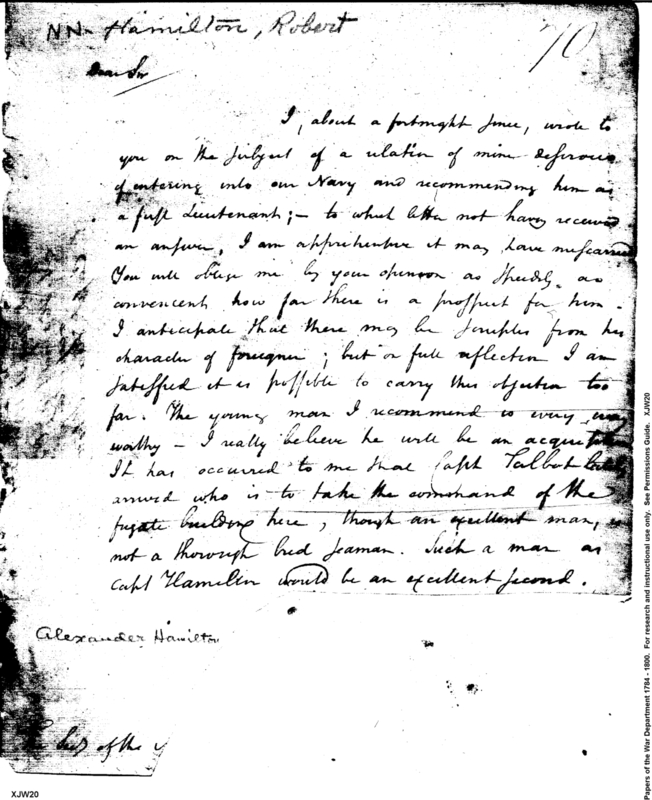 NN- Hamilton, Robert
70
Dear Sir
I, about a fortnight since, wrote to
you on the subject of a relation of mine desirous
of entering into our Navy and recommending him as
a first Lieutenant;— to which letter not having received
an answer, I am apprehensive it may have miscarried
You will oblige me by your opinion as speedily as
convenient how far there is a prospect for him.
I anticipate that there may be scruples from his
character of foreigner; but on full reflection I am
satisfied it is possible to carry this objection too
far. The young man I recommend is very, very
worthy – I really believe he will be an acquisition
It has occurred to me that Capt Talbot lately
arrived who is to take the command of the
frigate building here, though an excellent man, is
not a thorough bred seaman. Such a man as
Capt Hamilton would be an excellent second.
Alexander Hamilton
of the
XJW20
Papers of the War Department 1784 - 1800. For research and instructional use only. See Permissions Guide. XJW20